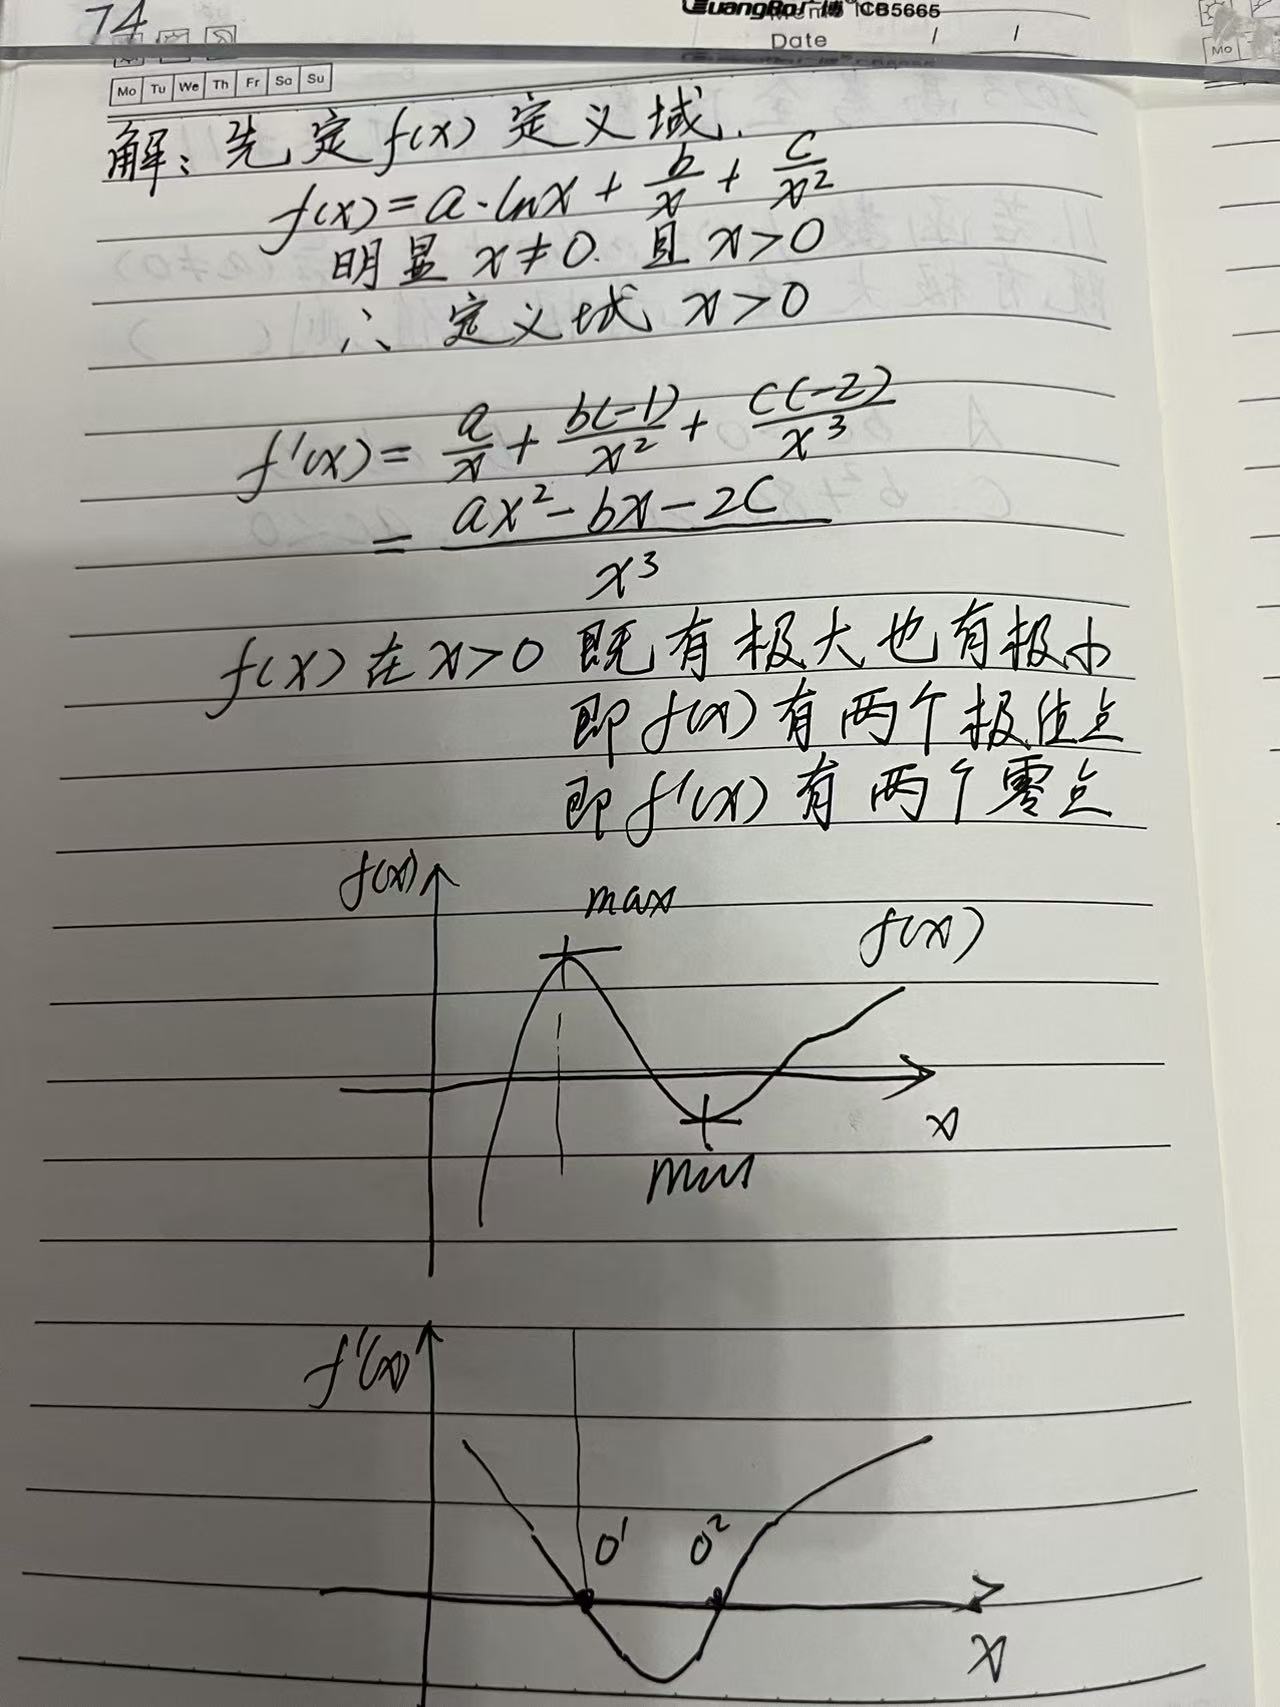 74
GuangBo广博 CB5665
Date / /
Mo Tu We Th Fr Sa Su
Mo
解：先定f(x)定义域.
f(x)=a·lnx+b/x+c/x²
明显 x≠0. 且 x>0
∴ 定义域 x>0
f'(x)=a/x+b(-1)/x²+c(-2)/x³
=(ax²-bx-2c)/x³
f(x)在x>0 既有极大也有极小
即f(x)有两个极值点
即f'(x)有两个零点
f(x)
max
f(x)
x
min
f'(x)
0¹ 0²
x